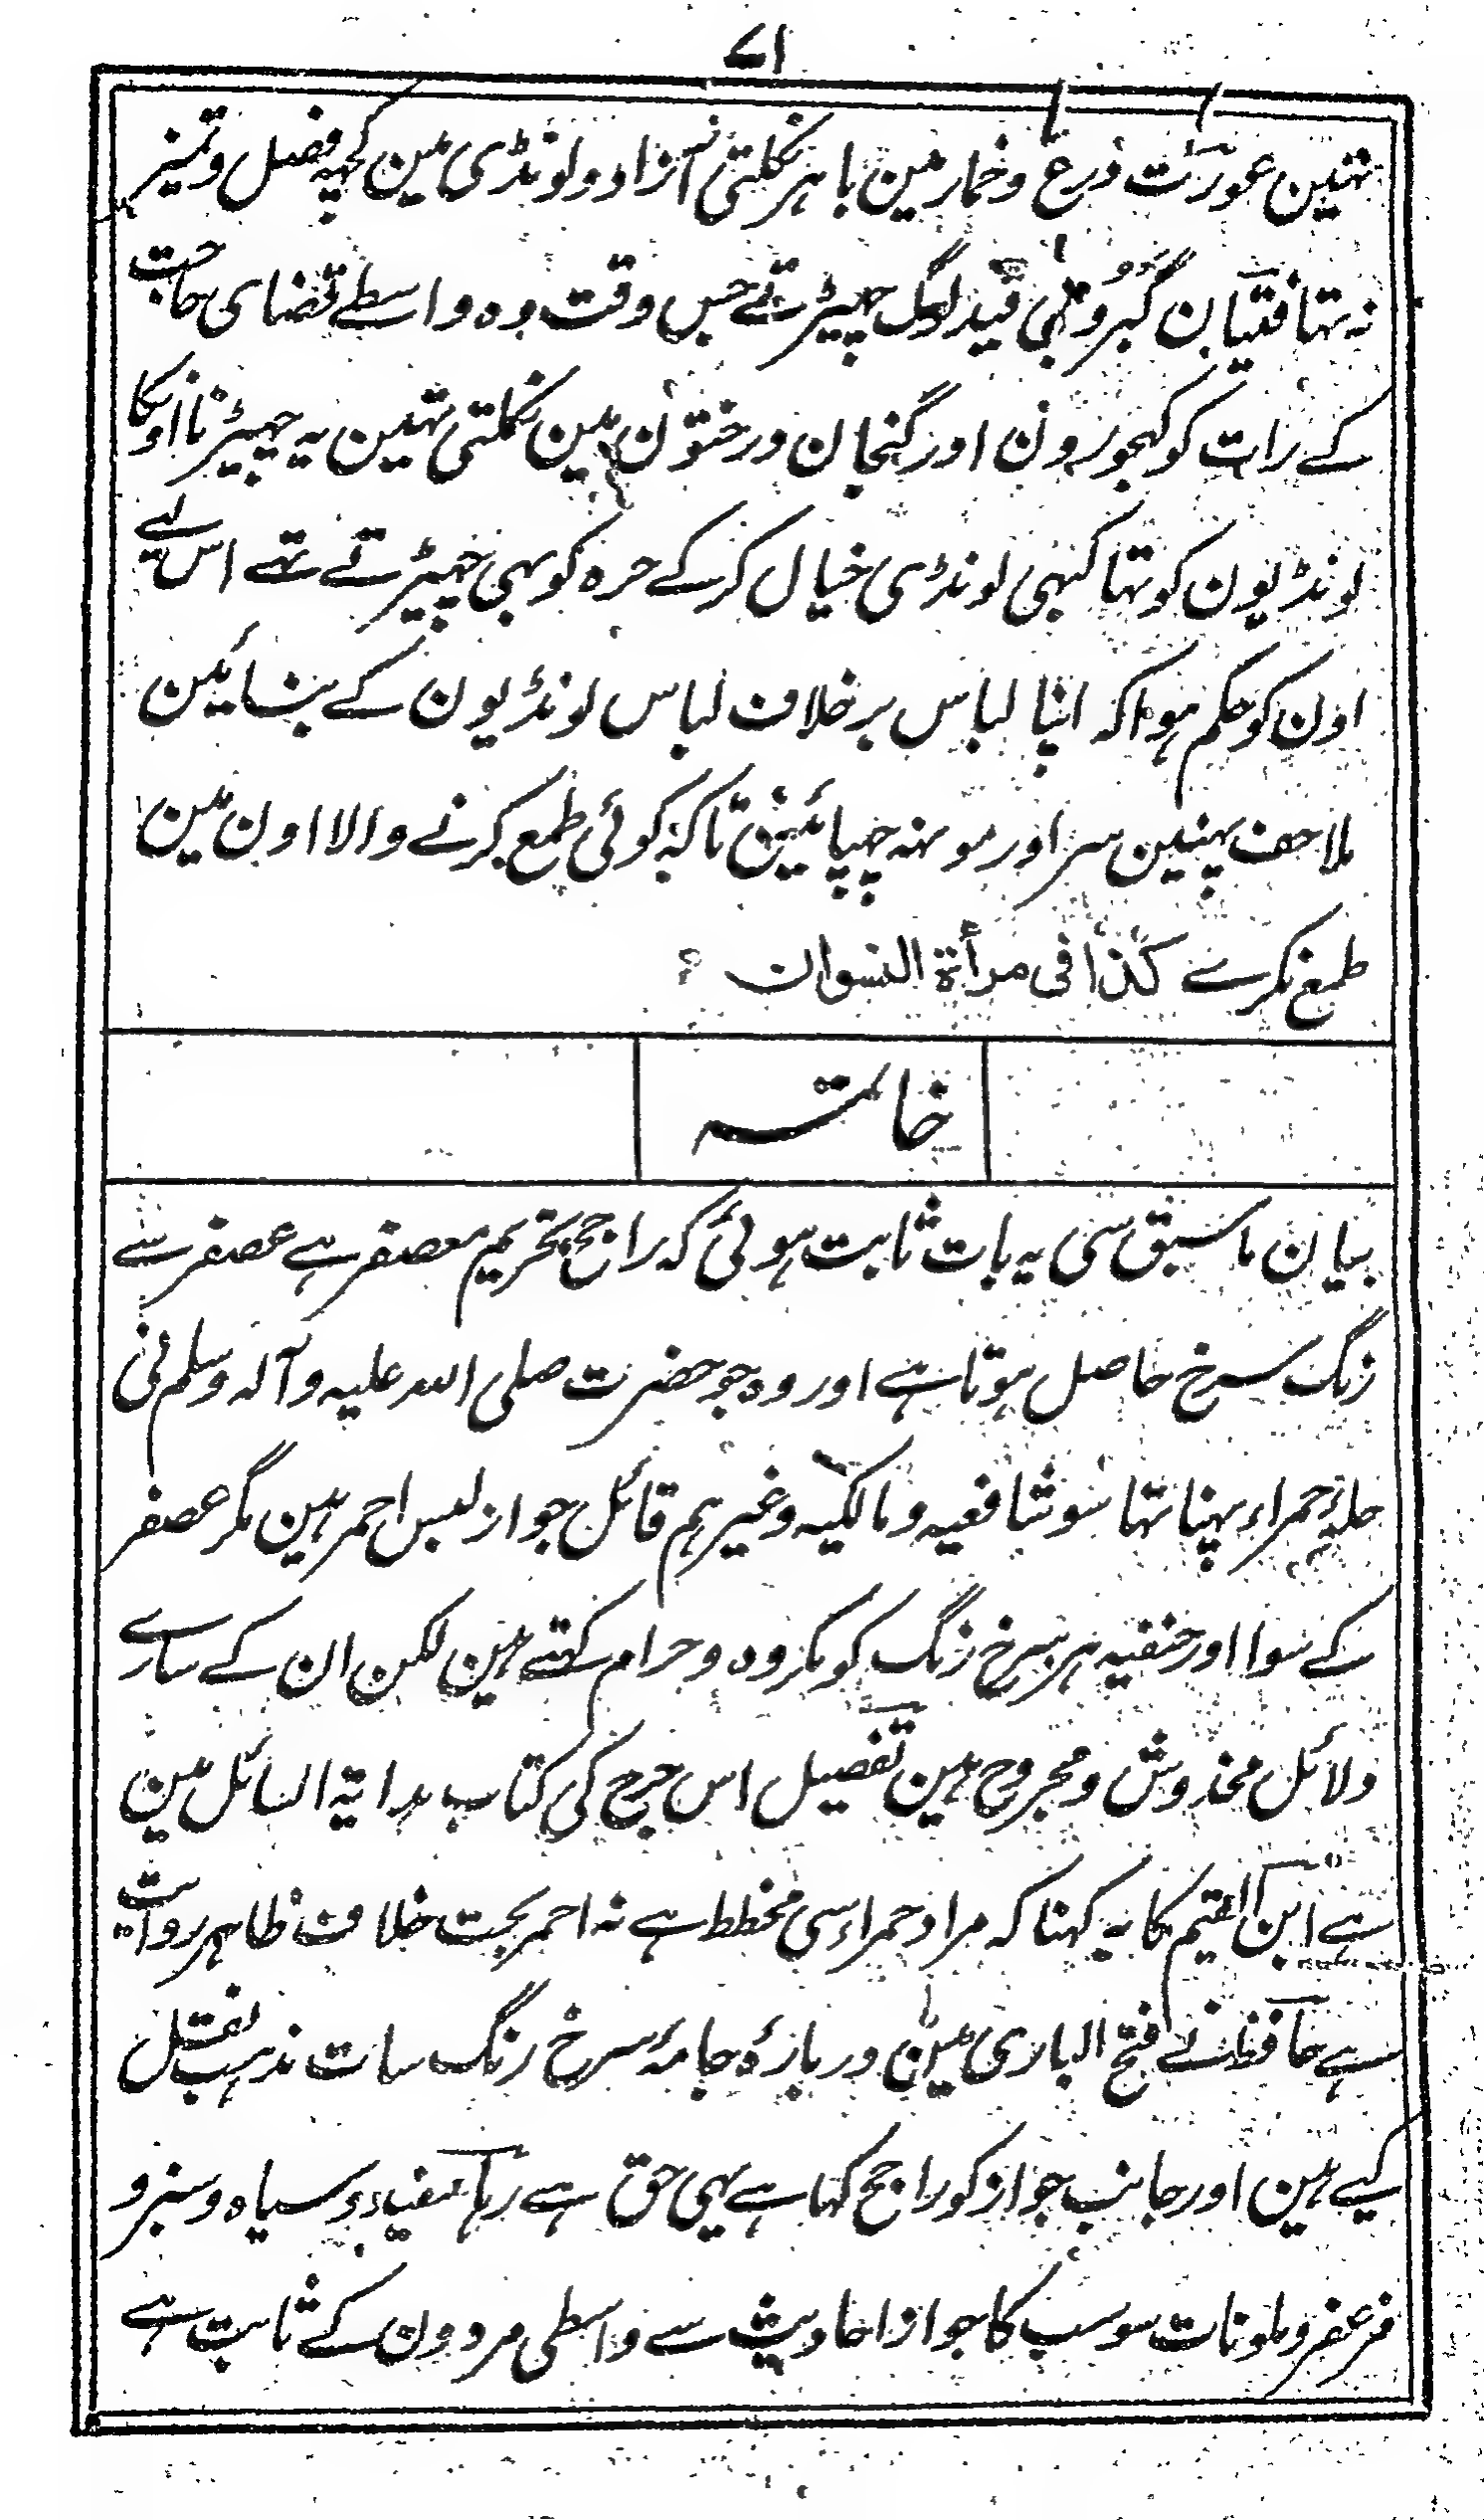 ۷۱
تہین عورت درع وخمار مین باہر نکلتی آزاد ولونڈی مین کچہہ فصل وتمیز
نہ تہا فتیان گبرو بی قید لوگ چہیڑتے جس وقت وہ واسطے قضای حاجت
کے رات کو کہجورون اور گنجان درختون مین نکلتی تہین یہ چہیڑنا اونکا
لونڈیون کو تہا کبہی لونڈی خیال کرکے حرہ کو بہی چہیڑتے تہے اس لیے
اون کو حکم ہوا کہ اپنا لباس برخلاف لباس لونڈیون کے بنائین
ملاحف پہنین سر اور مونہہ چہپائین تاکہ کوئی طمع کرنے والا اون مین
طمع نکرے کذا فی مرأۃ النسوان
خاتمہ
بیان ماسبق سی یہ بات ثابت ہوئی کہ راجح تحریم معصفر ہے عصفر سے
رنگ سرخ حاصل ہوتا ہے اور وہ جو حضرت صلی اللہ علیہ وآلہ وسلم نی
حلہ حمراء پہنا تہا سو شافعیہ ومالکیہ وغیرہم قائل جواز لبس احمر ہین مگر عصفر
کے سوا اور حنفیہ ہر سرخ رنگ کو مکروہ وحرام کہتے ہین لکن ان کے سارے
دلائل مخدوش ومجروح ہین تفصیل اس جرح کی کتاب ہدایۃ السائل مین
ہے ابن القیم کا یہ کہنا کہ مراد حمراء سی مخطط ہے نہ احمر بحت خلاف ظاہر روایت
ہے حافظ نے فتح الباری مین دربارۂ جامۂ سرخ رنگ سات مذہب نقل
کیے ہین اور جانب جواز کو راجح کہا ہے یہی حق ہے رہا سفید وسیاہ وسبز و
مزعفر وملونات سو سب کا جواز احادیث سے واسطی مردون کے ثابت ہے